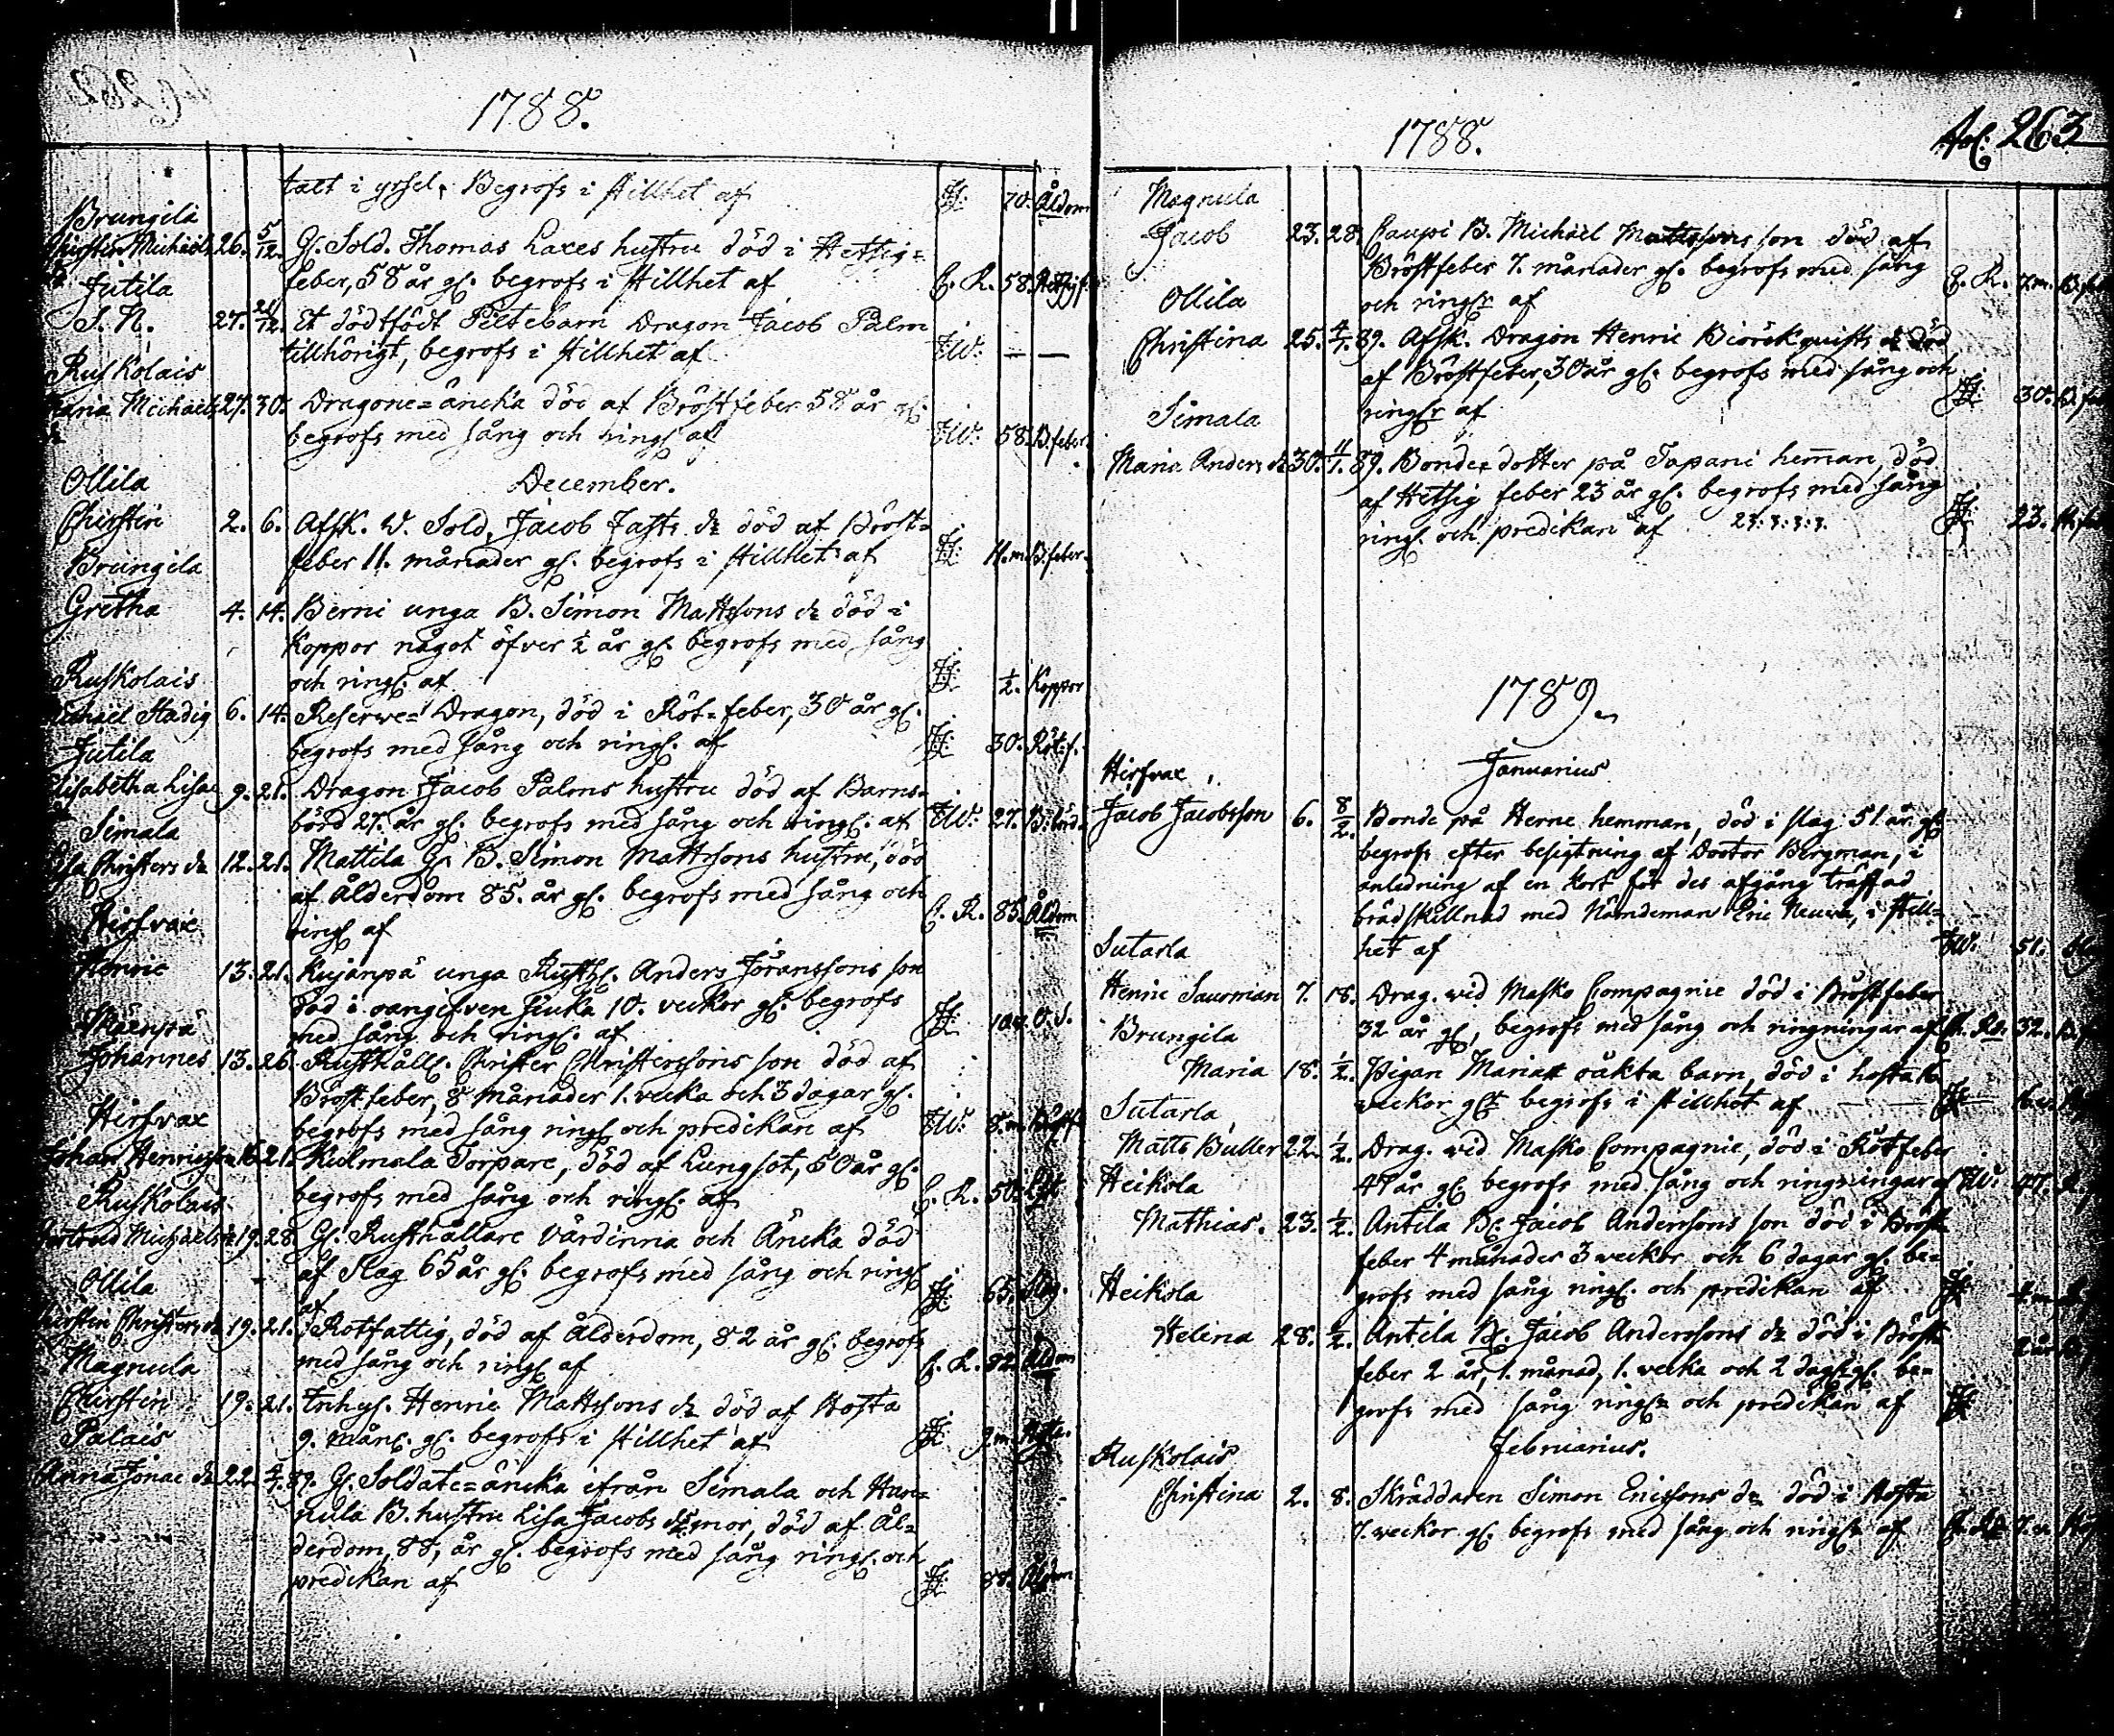 1788.
talt i gssel, Begrofs i stillhet af 70. Åldom
Brungila
Chirstin Michaels 26. 5/12. Gl. Sold. Thomas Laxes hustru död i Hetsig=
feber, 58 år gl. begrofs i stillhet af C. R. 58. Hetsigf
Jutila
S. N. 27. 21/12. Et dödfödt Piltebarn Dragon Jacob Palm
tillhörigt, begrofs i stillhet af JW: — —
Ruskolais
Maria Michaels 27. 30. Dragone=äncka död af Bröstfeber 58 år gl.
begrofs med sång och ringl. af JW: 58. B.feber.
December.
Ollila
Chirstin 2. 6. Afsk. V. Sold. Jacob Fasts dr död af Bröst=
feber 11. månader gl. begrofs i stillhet af 11.m B.feber.
Brungila
Gretha 4. 14. Berni unga B. Simon Mattssons dr död i
Koppor något öfver ½ år gl. begrofs med sång
och ringl. af ½. Koppor
Ruskolais
Michael Stadig 6. 14. Reserve=Dragon, död i Röt=feber, 30 år gl.
begrofs med sång och ringl. af 30. Röt:f.
Jutila
Elisabetha Lisae 9. 21. Dragon Jacob Palms hustru död af Barns=
börd 27. år gl. begrofs med sång och ringl. af JW: 27. B:börd.
Simala
Lisa Christers dr 12. 21. Mattila Gl. B. Simon Mattssons hustru, död
af Ålderdom 85. år gl. begrofs med sång och
ringl af C. R. 85. Åldom
Hirfvax
Henric 13. 21. Kujanpä unga Rusth. Anders Jöranssons son
död i oangifven siuka 10. veckor gl. begrofs
med sång och ringl. af 10.v. O. S.
Mäenpä
Johannes 13. 26. Rusthåll. Christer Christerssons son död af
Bröstfeber, 8 månader 1. vecka och 3 dagar gl.
begrofs med sång ringl och predikan af JW: 8.m.
Hirfvax
Johan Henricsson 16. 21. Kulmala Torpare, död af Lungsot, 50 år gl.
begrofs med sång och ringl. af C. R. 50.
Ruskolais
Gertrud Michaels dr 19. 28. Gl. Rusthållare Värdinna och Äncka död
af Slag 65 år gl. begrofs med sång och ringl
af 65. Slag.
Ollila
Chirstin Christers dr 19. 21. Rotfattig, död af Ålderdom, 82 år gl. begrofs
med sång och ringl af C. R. 82. Åldom
Magnula
Chirstin 19. 21. Inhys. Henric Mattssons dr död af Hosta
9. mån. gl. begrofs i stillhet af 9.m. Hosta.
Palais
Anna Jonae dr 22. 4/1. 89. Gl. Soldate=äncka ifrån Simala och Han=
nula B. hustru Lisa Jacobs dr mor, död af Ål=
derdom, 88, år gl. begrofs med sång ringl. och
predikan af 88. Åldom
1788. Fol: 263
Magnula
Jacob 23. 28. Caupi B. Michael Mattssons son död af
Bröstfeber 7. månader gl. begrofs med sång
och ringl. af C. R. 7.m.
Ollila
Christina 25. 4/1. 89. Afsk. Dragon Henric Biörckquists dr död
af Bröstfeber, 30 år gl. begrofs med sång och
ringl. af 30.
Simala
Maria Anders dr 30. 11/1. 89. Bonde dotter på Tapani heman, död
af Hetsig feber 23 år gl. begrofs med sång
ringl. och predikan af 23.
1789.
Januarius
Hirfvax
Jacob Jacobsson 6. 8/2. Bonde på Herne hemman, död i slag 51 år gl
begrofs efter besigtning af Doctor Bergman, i
anledning af en kort för des afgång träffad
brådskillnad med Nämdeman Eric, i still=
het af JW. 51.
Sutarla
Henric Saurman 7. 18. Drag. vid Masko Compagnie död i Bröstfeber
32 år gl, begrofs med sång och ringningar af 32.
Brungila
Maria 18. ½. Pigan Marias oäkta barn, död i hosta
veckor gl begrofs i stillhet af
Sutarla
Matts Buller 22. ½. Drag. vid Masko Compagnie, död i Rötfeber
47 år gl begrofs med sång och ringningar af JW: 47.
Heikola
Mathias. 23. ½. Antila B. Jacob Anderssons son död i Bröst
feber 4 månader 3 veckor och 6 dagar gl. be=
grofs med sång ringl. och predikan af
Heikola
Helena 28. ½. Antila B. Jacob Anderssons dr död i Bröst
feber 2 år, 1. månad, 1. vecka och 2 dagar gl. be=
grofs med sång ringl och predikan af
Februarius.
Ruskolais
Christina 2. 8. Skräddaren Simon Ericssons dr död i Hosta
7. veckor gl. begrofs med sång och ringl. af 7.v.